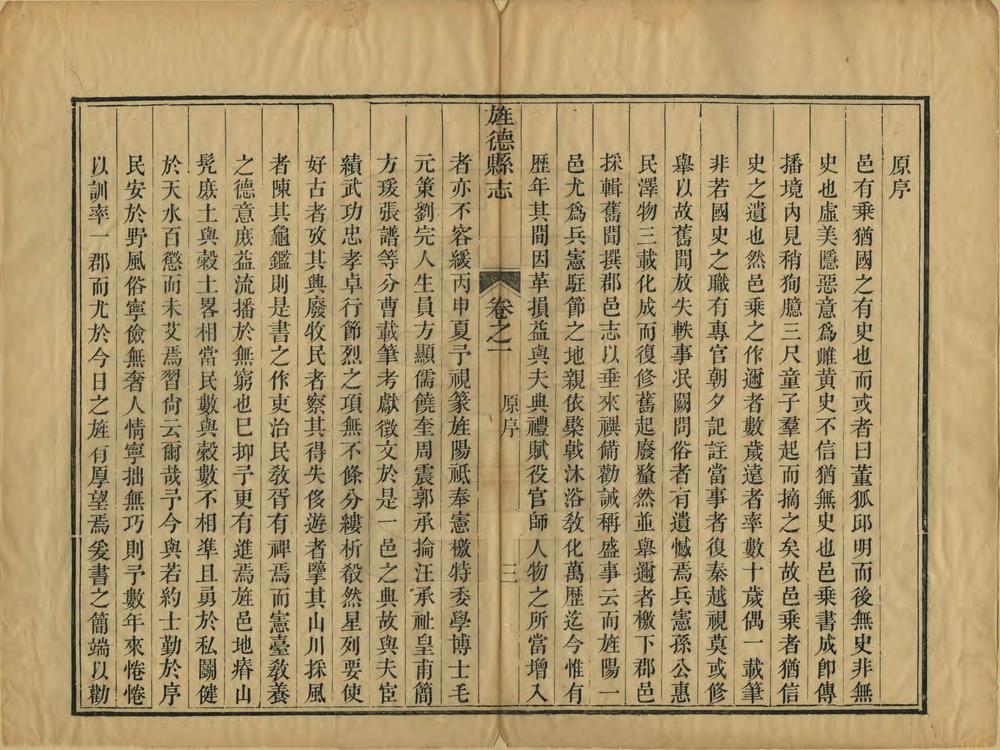 原序
邑有乘猶國之有史也而或者曰董狐邱明而後無史非無
史也虛美隱惡意為雌黃史不信猶無史也邑乘書成卽傳
播境內見稍狥臆三尺童子羣起而摘之矣故邑乘者猶信
史之遺也然邑乘之作邇者數歲遠者率數十歲偶一載筆
非若國史之職有專官朝夕記註當事者復秦越視莫或修
舉以故舊聞放失軼事泯闕問俗者有遺憾焉兵憲孫公惠
民澤物三載化成而復修舊起廢釐然並舉邇者檄下郡邑
採輯舊聞撰郡邑志以垂來禩備勸誡稱盛事云而旌陽一
邑尤爲兵憲駐節之地親依棨戟沐浴敎化萬歷迄今惟有
歷年其間因革損益與夫典禮賦役官師人物之所當增入
旌德縣志 卷之一 原序 三
者亦不容緩丙申夏予視篆旌陽祗奉憲檄特委學博士毛
元策劉完人生員方顯儒饒奎周震郭承掄汪承祉皇甫簡
方瑗張譜等分曹載筆考獻徵文於是一邑之典故與夫宦
績武功忠孝卓行節烈之項無不條分縷析㲄然星列要使
好古者攷其興廢牧民者察其得失侈遊者擥其山川採風
者陳其龜鑑則是書之作吏治民敎胥有裨焉而憲臺敎養
之德意庶益流播於無窮也已抑予更有進焉旌邑地瘠山
髠庶土與穀土畧相當民數與穀數不相準且勇於私鬭健
於天水百懲而未艾焉習尙云爾哉予今與若約士勤於序
民安於野風俗寧儉無奢人情寧拙無巧則予數年來惓惓
以訓率一郡而尤於今日之旌有厚望焉爰書之簡端以勸